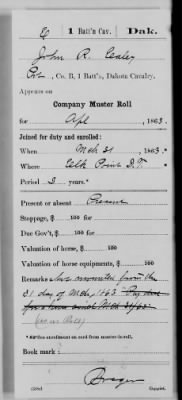 C | 1 Batt'n Cav. | Dak.
John R. Cealey
Pvt, Co. B, 1 Batt'n, Dakota Cavalry.
Appears on
Company Muster Roll
for Apl, 1863.
Joined for duty and enrolled:
When Mch 31, 1863.
Where Elk Point D.T.
Period 3 years.*
Present or absent Present
Stoppage, $ 100 for
Due Gov't, $ 100 for
Valuation of horse, $ 100
Valuation of horse equipments, $ 100
Remarks: Not mounted from the
31 day of Mch, 1863. Pay due
for
* See enrollment on card from muster-in roll.
Book mark:
(358c) Copyist.